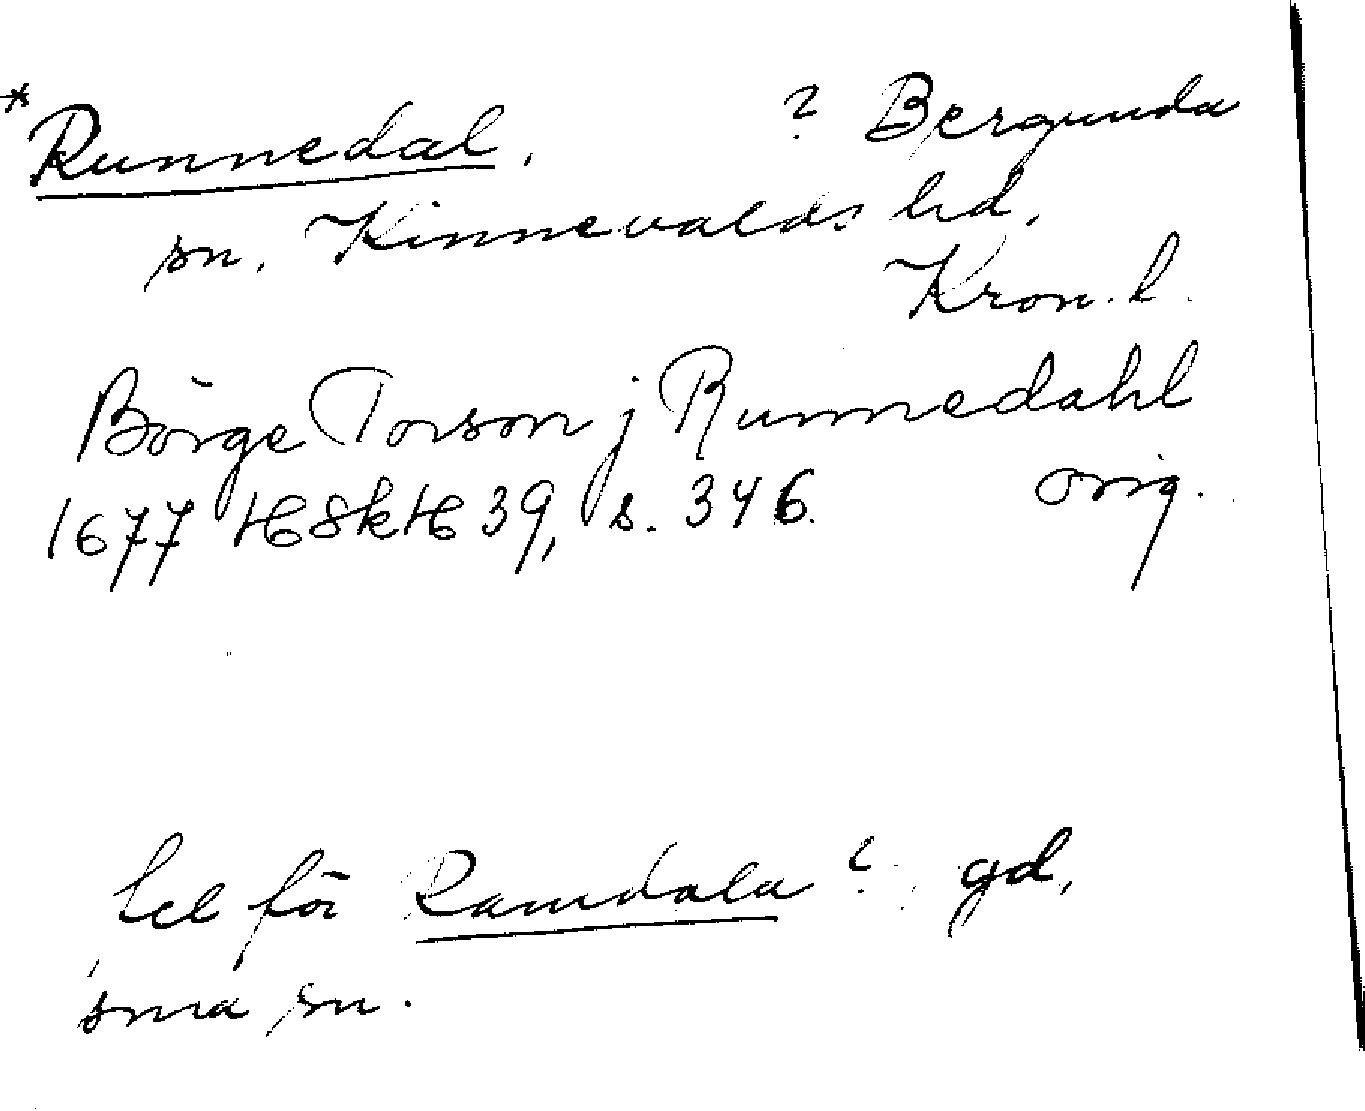 *Runnedal. ? Bergunda
sn. Kinnevalds hd.
Kron. l.
Börge Torson j Runnedahl
1677 HSkH 39, s. 346. orig.
fel för Ramdala? gd,
sma sn.